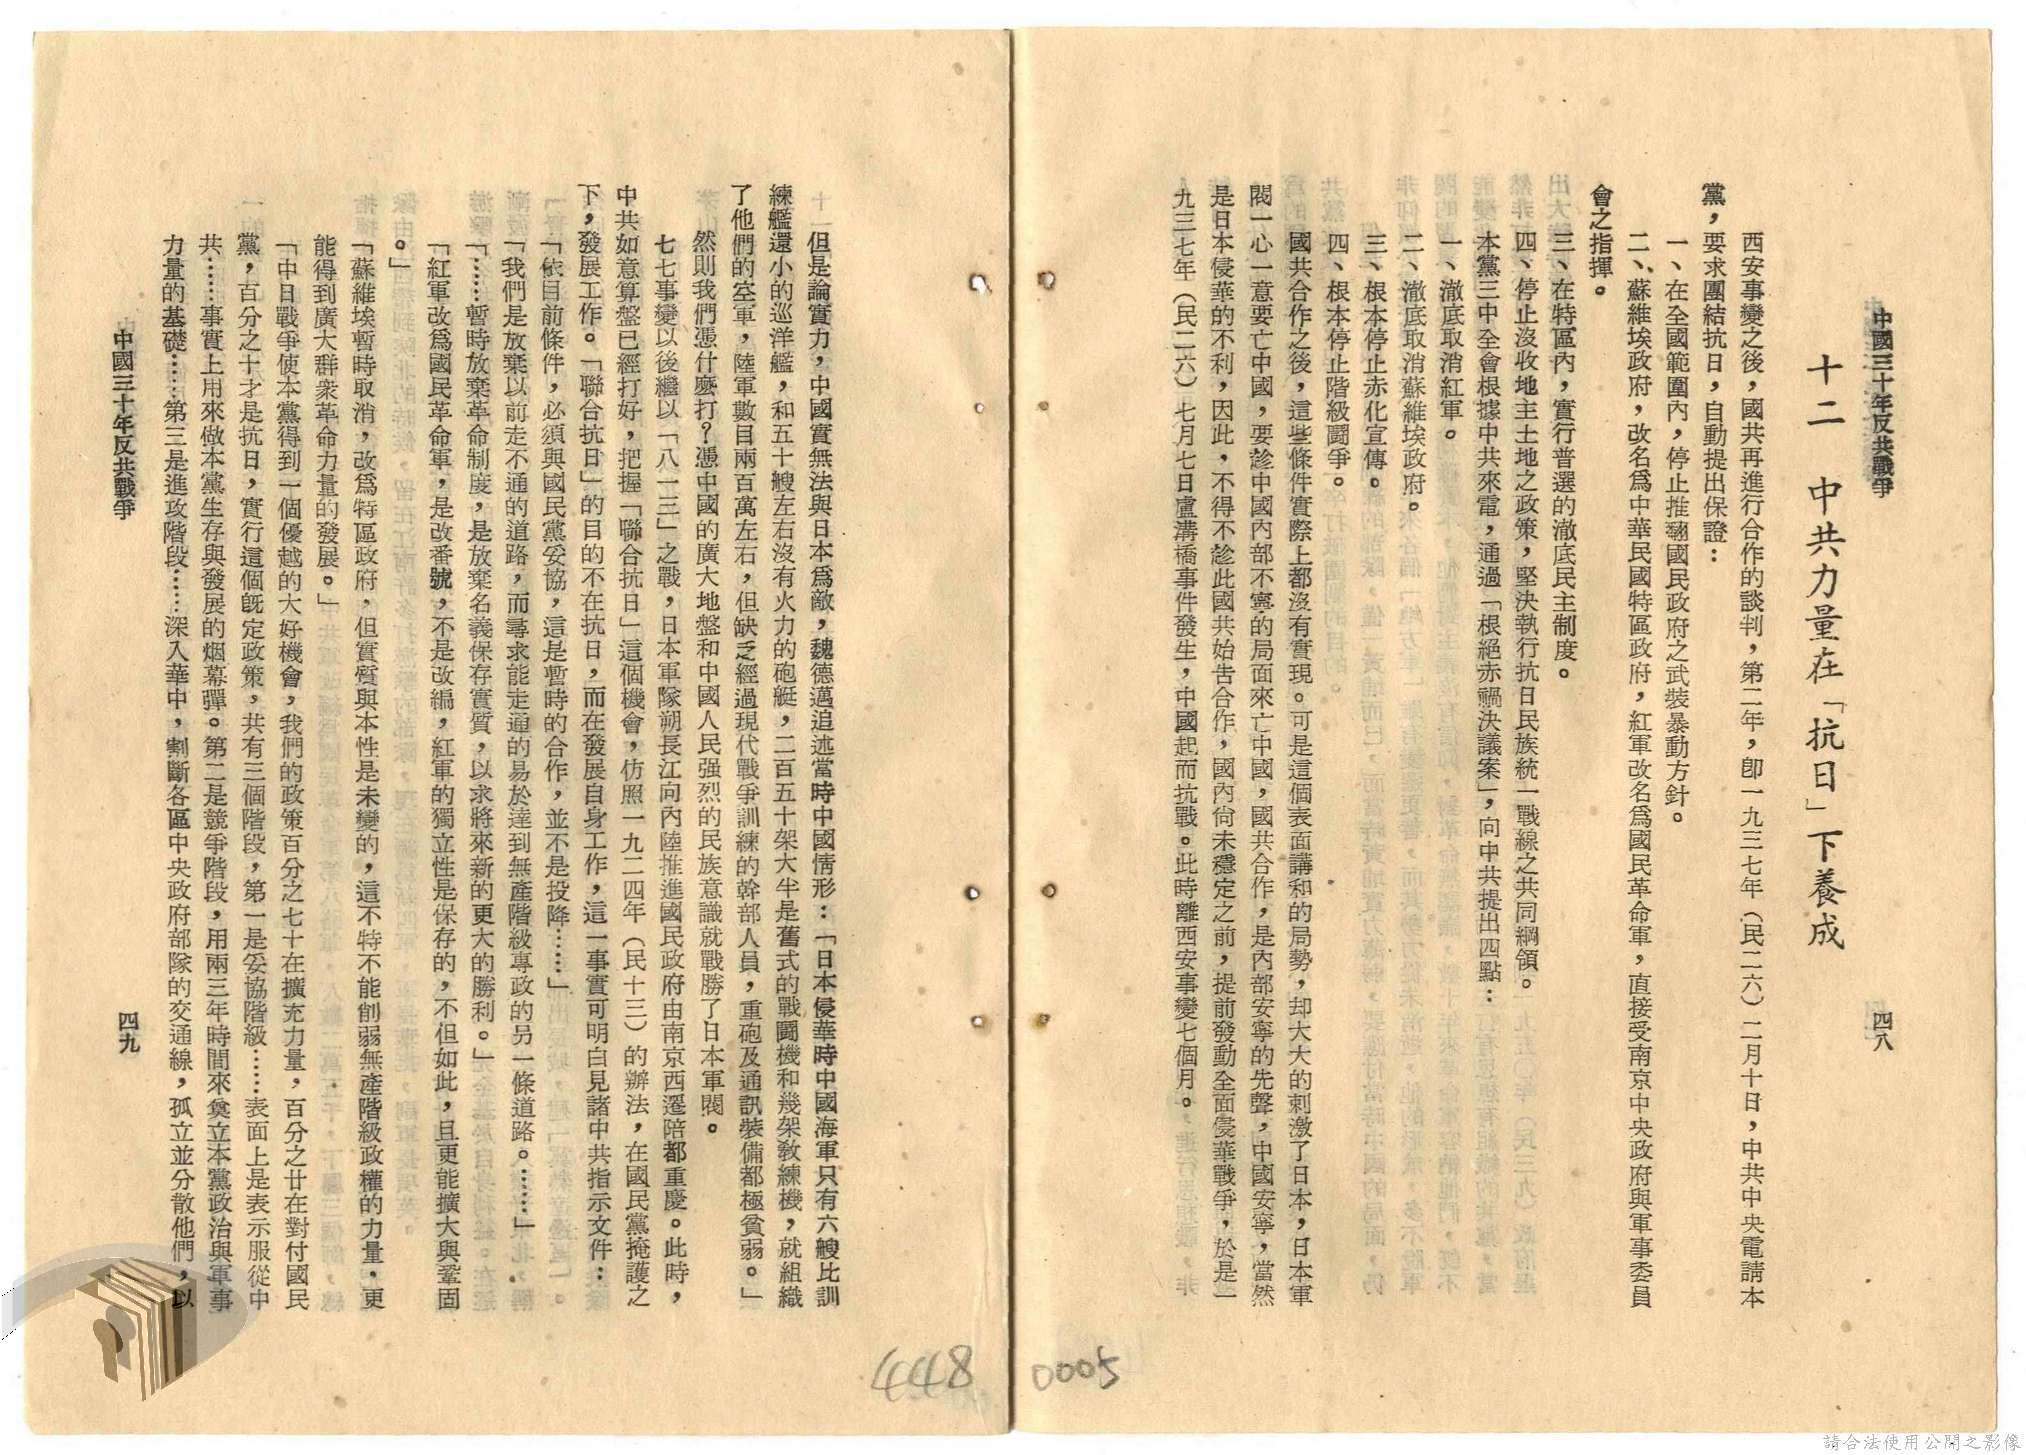 中國三十年反共戰爭
四八
十二　中共力量在「抗日」下養成
西安事變之後，國共再進行合作的談判，第二年，卽一九三七年（民二六）二月十日，中共中央電請本
黨，要求團結抗日，自動提出保證：
一、在全國範圍內，停止推翻國民政府之武裝暴動方針。
二、蘇維埃政府，改名爲中華民國特區政府，紅軍改名爲國民革命軍，直接受南京中央政府與軍事委員
會之指揮。
三、在特區內，實行普選的澈底民主制度。
四、停止沒收地主土地之政策，堅決執行抗日民族統一戰線之共同綱領。
本黨三中全會根據中共來電，通過「根絕赤禍決議案」，向中共提出四點：
一、澈底取消紅軍。
二、澈底取消蘇維埃政府。
三、根本停止赤化宣傳。
四、根本停止階級鬪爭。
國共合作之後，這些條件實際上都沒有實現。可是這個表面講和的局勢，却大大的刺激了日本，日本軍
閥一心一意要亡中國，要趁中國內部不寧的局面來亡中國，國共合作，是內部安寧的先聲，中國安寧，當然
是日本侵華的不利，因此，不得不趁此國共始吿合作，國內尙未穩定之前，提前發動全面侵華戰爭，於是一
九三七年（民二六）七月七日盧溝橋事件發生，中國起而抗戰。此時離西安事變七個月。
但是論實力，中國實無法與日本爲敵，魏德邁追述當時中國情形：「日本侵華時中國海軍只有六艘比訓
練艦還小的巡洋艦，和五十艘左右沒有火力的砲艇，二百五十架大半是舊式的戰鬪機和幾架教練機，就組織
了他們的空軍，陸軍數目兩百萬左右，但缺乏經過現代戰爭訓練的幹部人員，重砲及通訊裝備都極貧弱。」
然則我們憑什麽打？憑中國的廣大地盤和中國人民强烈的民族意識就戰勝了日本軍閥。
七七事變以後繼以「八一三」之戰，日本軍隊朔長江向內陸推進國民政府由南京西遷陪都重慶。此時，
中共如意算盤已經打好，把握「聯合抗日」這個機會，仿照一九二四年（民十三）的辦法，在國民黨掩護之
下，發展工作。「聯合抗日」的目的不在抗日，而在發展自身工作，這一事實可明白見諸中共指示文件：
「依目前條件，必須與國民黨妥協，這是暫時的合作，並不是投降……」
「我們是放棄以前走不通的道路，而尋求能走通的易於達到無產階級專政的另一條道路。……」
「……暫時放棄革命制度，是放棄名義保存實質，以求將來新的更大的勝利。」
「紅軍改爲國民革命軍，是改番號，不是改編，紅軍的獨立性是保存的，不但如此，且更能擴大與鞏固
。」
「蘇維埃暫時取消，改爲特區政府，但實質與本性是未變的，這不特不能削弱無產階級政權的力量．更
能得到廣大群衆革命力量的發展。」
「中日戰爭使本黨得到一個優越的大好機會，我們的政策百分之七十在擴充力量，百分之廿在對付國民
黨，百分之十才是抗日，實行這個旣定政策，共有三個階段，第一是妥協階級……表面上是表示服從中
共……事實上用來做本黨生存與發展的烟幕彈。第二是競爭階段，用兩三年時間來奠立本黨政治與軍事
力量的基礎……第三是進攻階段……深入華中，割斷各區中央政府部隊的交通線，孤立並分散他們，以
中國三十年反共戰爭
四九
448
0005
請合法使用公開之影像